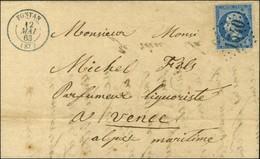 FONTAN
12
MAI
65
(87)
Monsieur Monsi
Michel Fils
Parfumeur liquoriste
a Vence
alpes maritime